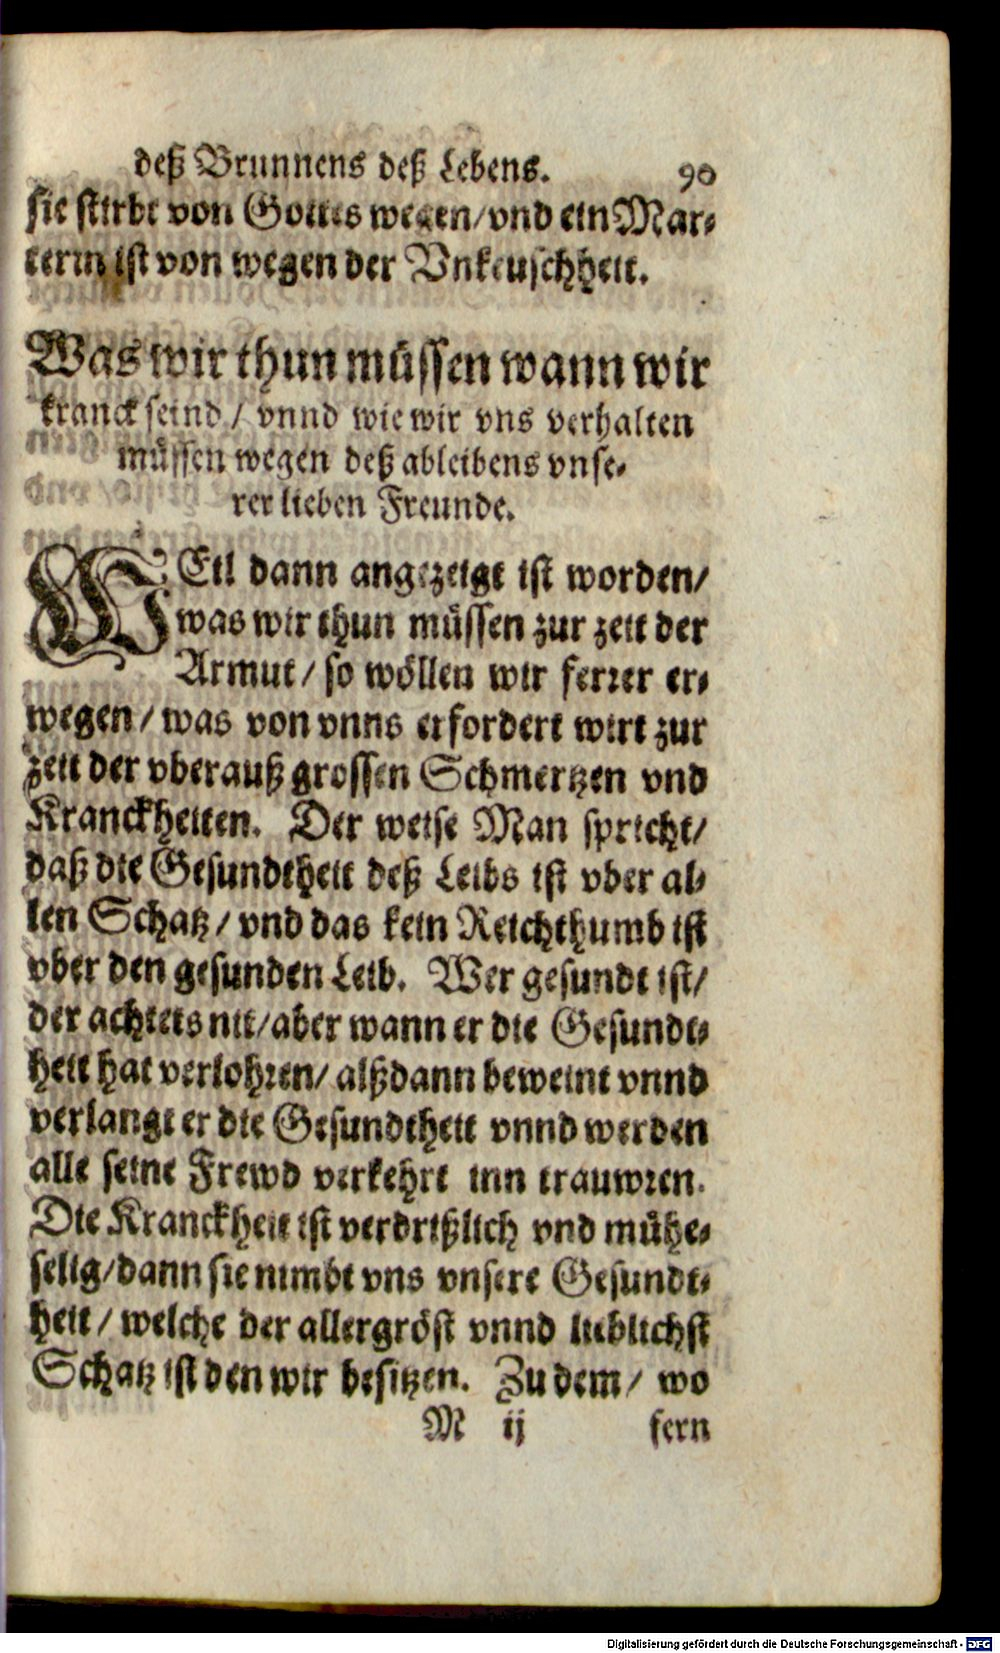 deß Brunnens deß Lebens. 90
sie stirbt von Gottes wegen/vnd ein Mar-
terin ist von wegen der Vnkeuschheit.
Was wir thun müssen wann wir
kranck seind / vnnd wie wir vns verhalten
müssen wegen deß ableibens vnse-
rer lieben Freunde.
WEil dann angezeigt ist worden/
was wir thun müssen zur zeit der
Armut / so wöllen wir ferrer er-
wegen / was von vnns erfordert wirt zur
zeit der vberauß grossen Schmertzen vnd
Kranckheiten. Der weise Man spricht/
daß die Gesundtheit deß Leibs ist vber al-
len Schatz / vnd das kein Reichthumb ist
vber den gesunden Leib. Wer gesundt ist/
der achtets nit/aber wann er die Gesundt-
heit hat verlohren/ alßdann beweint vnnd
verlangt er die Gesundtheit vnnd werden
alle seine Frewd verkehrt inn trauwren.
Die Kranckheit ist verdrißlich vnd mühe-
selig/dann sie nimbt vns vnsere Gesundt-
heit / welche der allergröst vnnd lieblichst
Schatz ist den wir besitzen. Zu dem / wo
M ij fern
Digitalisierung gefördert durch die Deutsche Forschungsgemeinschaft - DFG